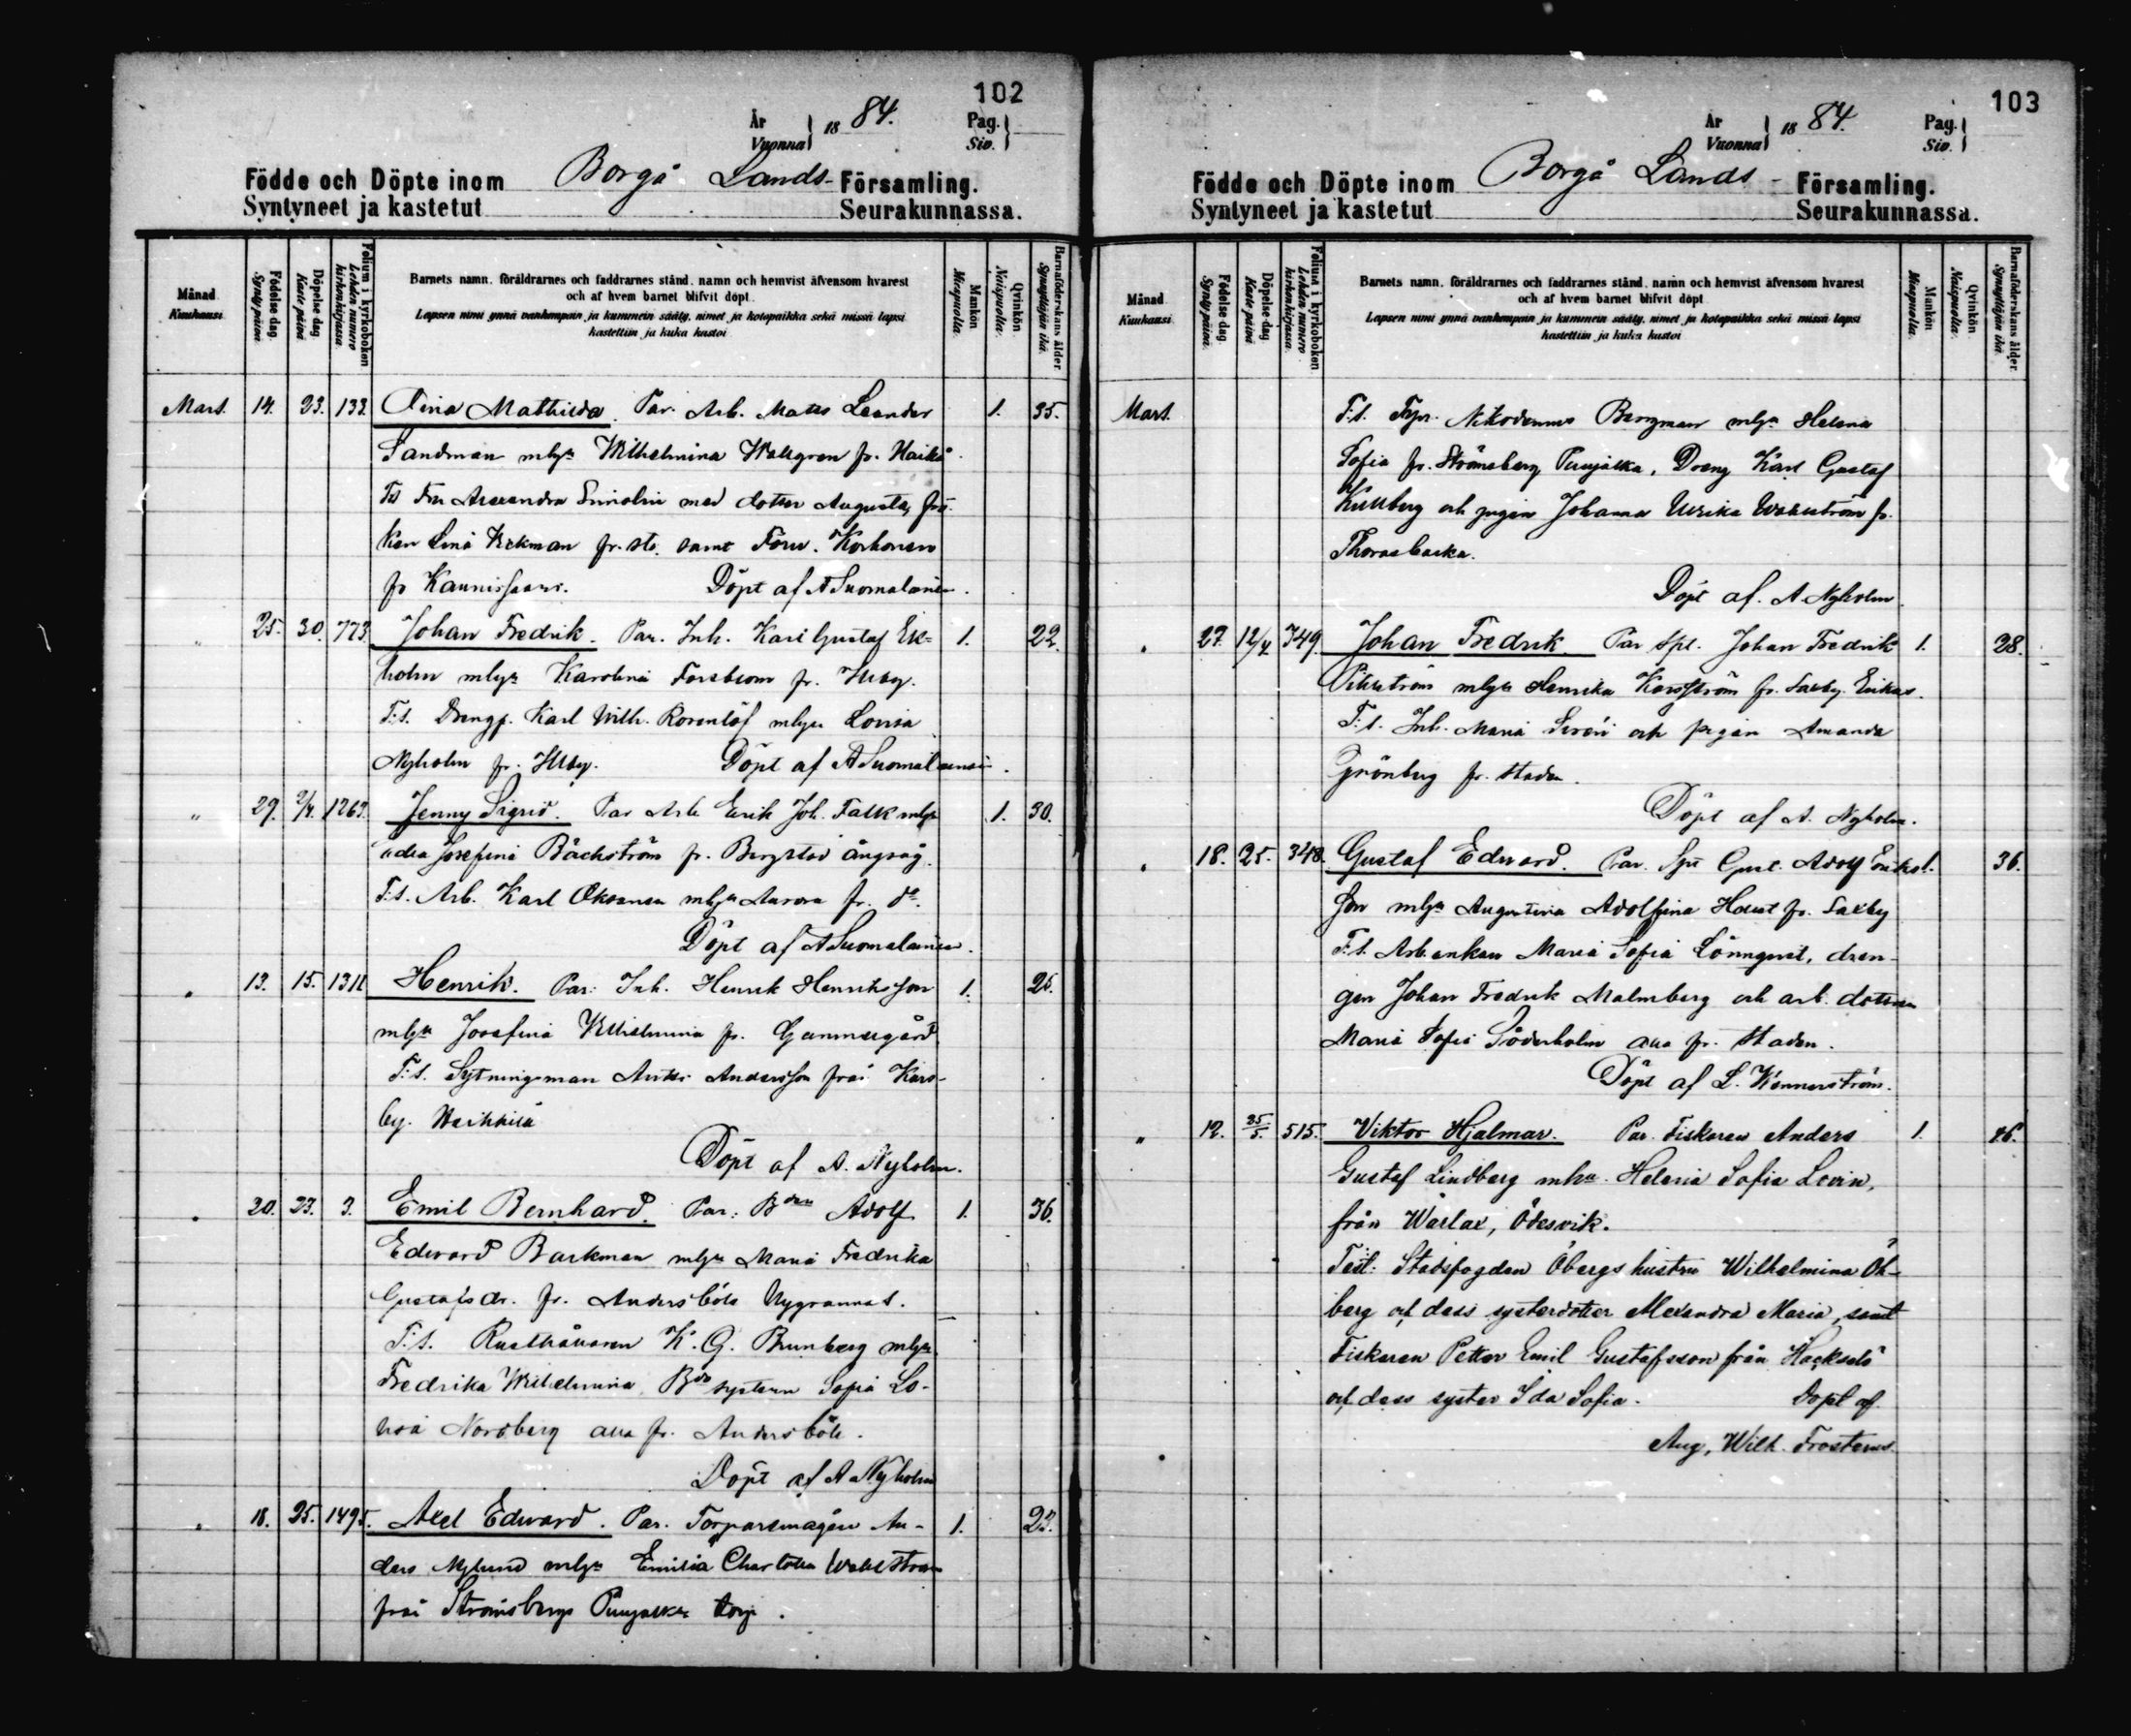 102
År
Vuonna } 18 84.
Pag.
Siv. }
Födde och Döpte inom Borgå Lands- Församling.
Syntyneet ja kastetut Seurakunnassa.
Månad.
Kuukausi.
Födelse dag.
Syntypäivä.
Döpelse dag.
Kaste päivä
Folium i kyrkoboken
Lehden numero kirkonkirjassa.
Barnets namn, föräldrarnes och faddrarnes stånd, namn och hemvist äfvensom hvarest
och af hvem barnet blifvit döpt.
Lapsen nimi ynnä vanhempain ja kummein sääty, nimet ja kotopaikka sekä missä lapsi
kastettiin ja kuka kastoi
Mankön
Miespuolta.
Qvinkön.
Naispuolta.
Barnaföderskans ålder.
Synnyttäjän ikä.
Mars. 14. 23. 133. Mathilda. Par. Arb. Mats Leander 1. 35.
Sandman mlgn Wilhelmina Wallgren fr. Haikå
Ts Fru Alexandra med dotter Augusta, frö-
ken Lina Ekman fr. sts. samt Förv. Korhonen
fr Kaunissaari. Döpt af A Suomalainen.
" 25. 30. 773. Johan Fredrik. Par. Inh. Karl Gustaf Ek= 1. 22.
holm mlgn Karolina Forsblom fr. Illby.
T:s. Drengp. Karl Wilh. Rosenlöf mlgn Lovisa
Nyholm fr. Illby. Döpt af A Suomalainen.
" 29. 2/4. 1263. Jenny Sigrid. Par Arb Erik Joh. Falk mlgn 1. 30.
Josefina Bäckström fr. Bergstad ångsåg.
T:s. Arb. Karl Oksanen mlgn Aurora fr. do.
Döpt af A Suomalainen.
" 13. 15. Henrik. Par: Inh. Henrik Henriksson 1. 25.
mlgn Josefina Wilhelmina fr. Gammelgård
T:s. Sytningsman Antti Andersson från Kars-
by. Waikkilä
Döpt af A. Nyholm.
" 20. 23. 3. Emil Bernhard. Par: Bden Adolf 1. 36.
Edward Backman mlgn Maria Fredrika
Gustafsdr. fr. Andersböle Nygrannas.
T:s. Rusthållaren K. G. Brunberg mlgn
Fredrika Wilhelmina, Bde systern Sofia Lo-
visa Nordberg alla fr. Andersböle.
Döpt af A Nyholm
" 18. 25. 1495. Axel Edward. Par. Torparemågen An- 1. 23.
ders Nylund mlgn Emilia Charlotta Wahlström
från Strömsbergs Punjalka torp.
103
År
Vuonna } 18 84.
Pag.
Siv. }
Födde och Döpte inom Borgå Lands- Församling.
Syntyneet ja kastetut Seurakunnassa.
Månad.
Kuukausi.
Födelse dag.
Syntypäivä.
Döpelse dag.
Kaste päivä
Folium i kyrkoboken.
Lehden numero kirkonkirjassa.
Barnets namn, föräldrarnes och faddrarnes stånd, namn och hemvist äfvensom hvarest
och af hvem barnet blifvit döpt
Lapsen nimi ynnä vanhempain ja kummein sääty, nimet ja kotopaikka sekä missä lapsi
kastettiin ja kuka kastoi
Mankön
Miespuolta.
Qvinkön
Naispuolta.
Barnaföderskans ålder.
Synnyttäjän ikä.
Mars. T:s. Nikodemus Bergman mlgn Helena
Sofia fr. Strömsberg Punjalka, Dreng Karl Gustaf
Kullberg och pigan Johanna Ulrika Wahlström fr.
Thorasbacka.
Döpt af. A. Nyholm.
" 27. 12/4. 349. Johan Fredrik. Par Spt. Johan Fredrik 1. 28.
Wikström mlgn Henrika Karlström fr. Saxby. Erikas.
T:s. Inh. Maria Sirén och pigan Amanda
Grönberg fr. staden.
Döpt af A. Nyholm.
" 18. 25. 348. Gustaf Edward. Par. Gust. Adolf Eriks- 1. 36.
son mlgn Augustina Adolfina fr. Saxby
T:s. Arb.enkan Maria Sofia Lönnqvist, dren-
gen Johan Fredrik Malmberg och arb. dottern
Maria Sofia Söderholm alla fr. staden.
Döpt af L. Wennerström.
" 12. 25/5. 515. Viktor Hjalmar. Par. Fiskaren Anders 1. 46.
Gustaf Lindberg mhu. Helena Sofia Levin,
från Warlax, Ödesvik.
Test: Stadsfogden Öbergs hustru Wilhelmina Öh-
berg och dess systerdotter Alexandra Maria, samt
Fiskaren Petter Emil Gustafsson från Hacksalö
och dess syster Ida Sofia. Döpt af
Aug, Wilh. Frosterus